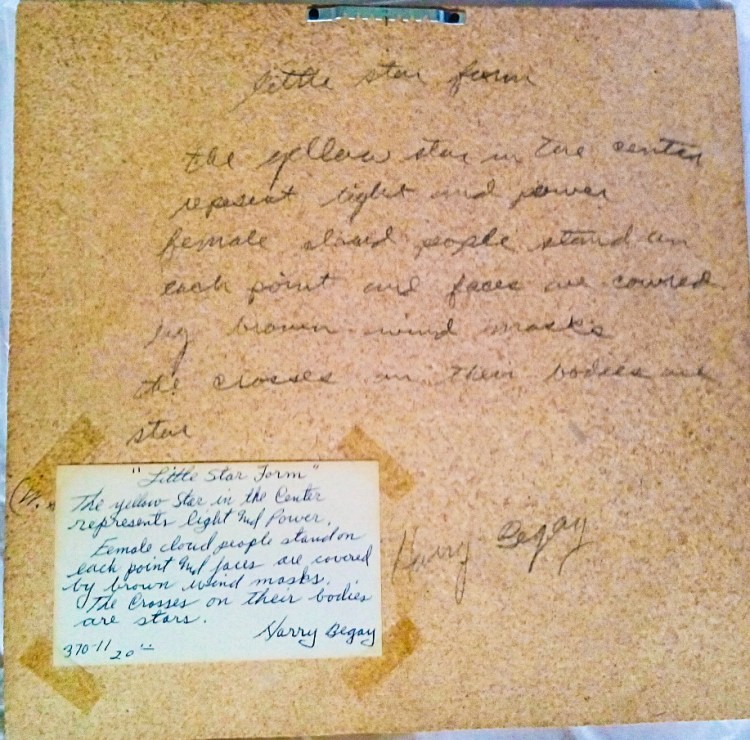 little star form
the yellow star in the center
repesent light and power
female cloud people stand on
each point and faces are covered
by brown wind masks
the crosses on their bodies are
star
Harry Begay
"Little Star Form"
The yellow Star in the Center
represents light and Power.
Female cloud people stand on
each point and faces are covered
by brown wind masks.
The Crosses on their bodies
are stars.
Harry Begay
370-11 20